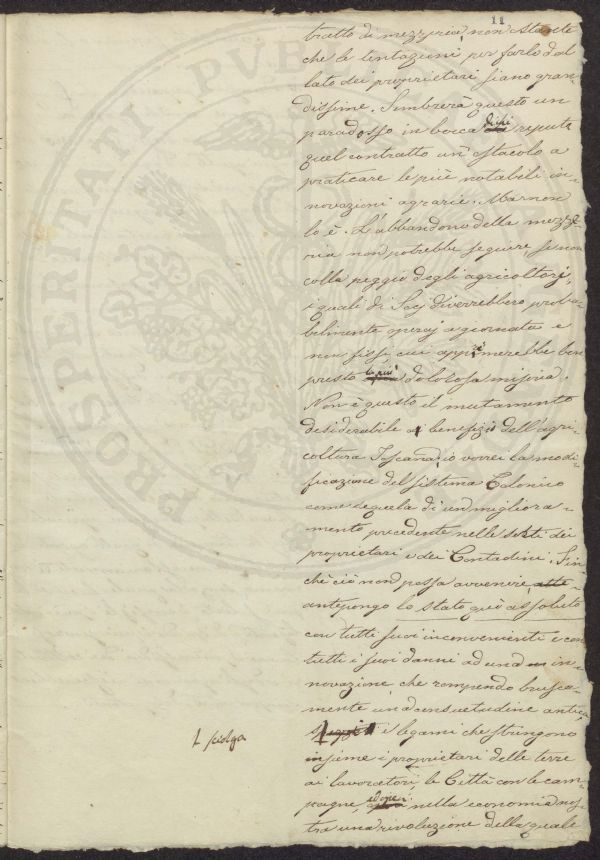 11
tratto di mezzeria, non ostante
che le tentazioni per farlo dal
lato dei proprietari siano gran-
dissime. Sembrerà questo un
paradosso in bocca di chi reputa
quel contratto un ostacolo a
praticare le più notabili in-
novazioni agrarie. Ma non
lo è. L'abbandono della mezze-
ria non potrebbe seguire senon
colla peggio degli agricoltori,
i quali di Socj diverrebbero proba-
bilmente operaj a giornata e
non fissi, cui opprimerebbe ben
presto la più dolorosa miseria.
Non è questo il mutamento
desiderabile a benefizio dell'agri-
coltura Toscana, io vorrei la modi-
ficazione del sistema Colonico
come sequela di un migliora-
mento precedente nelle sorti dei
proprietari e dei Contadini. Fin-
chè ciò non possa avvenire,
antepongo lo stato quo assoluto
con tutti suoi inconvenienti e con
tutti i suoi danni ad una in-
novazione che rompendo brusca-
mente una consuetudine antica,
i legami che stringono
insieme i proprietari delle terre
ai lavoratori, le Città con le cam-
pagne, ed operi nella economia nos-
tra una rivoluzione della quale
sciolga
PROSPERITATI PUBLICAE